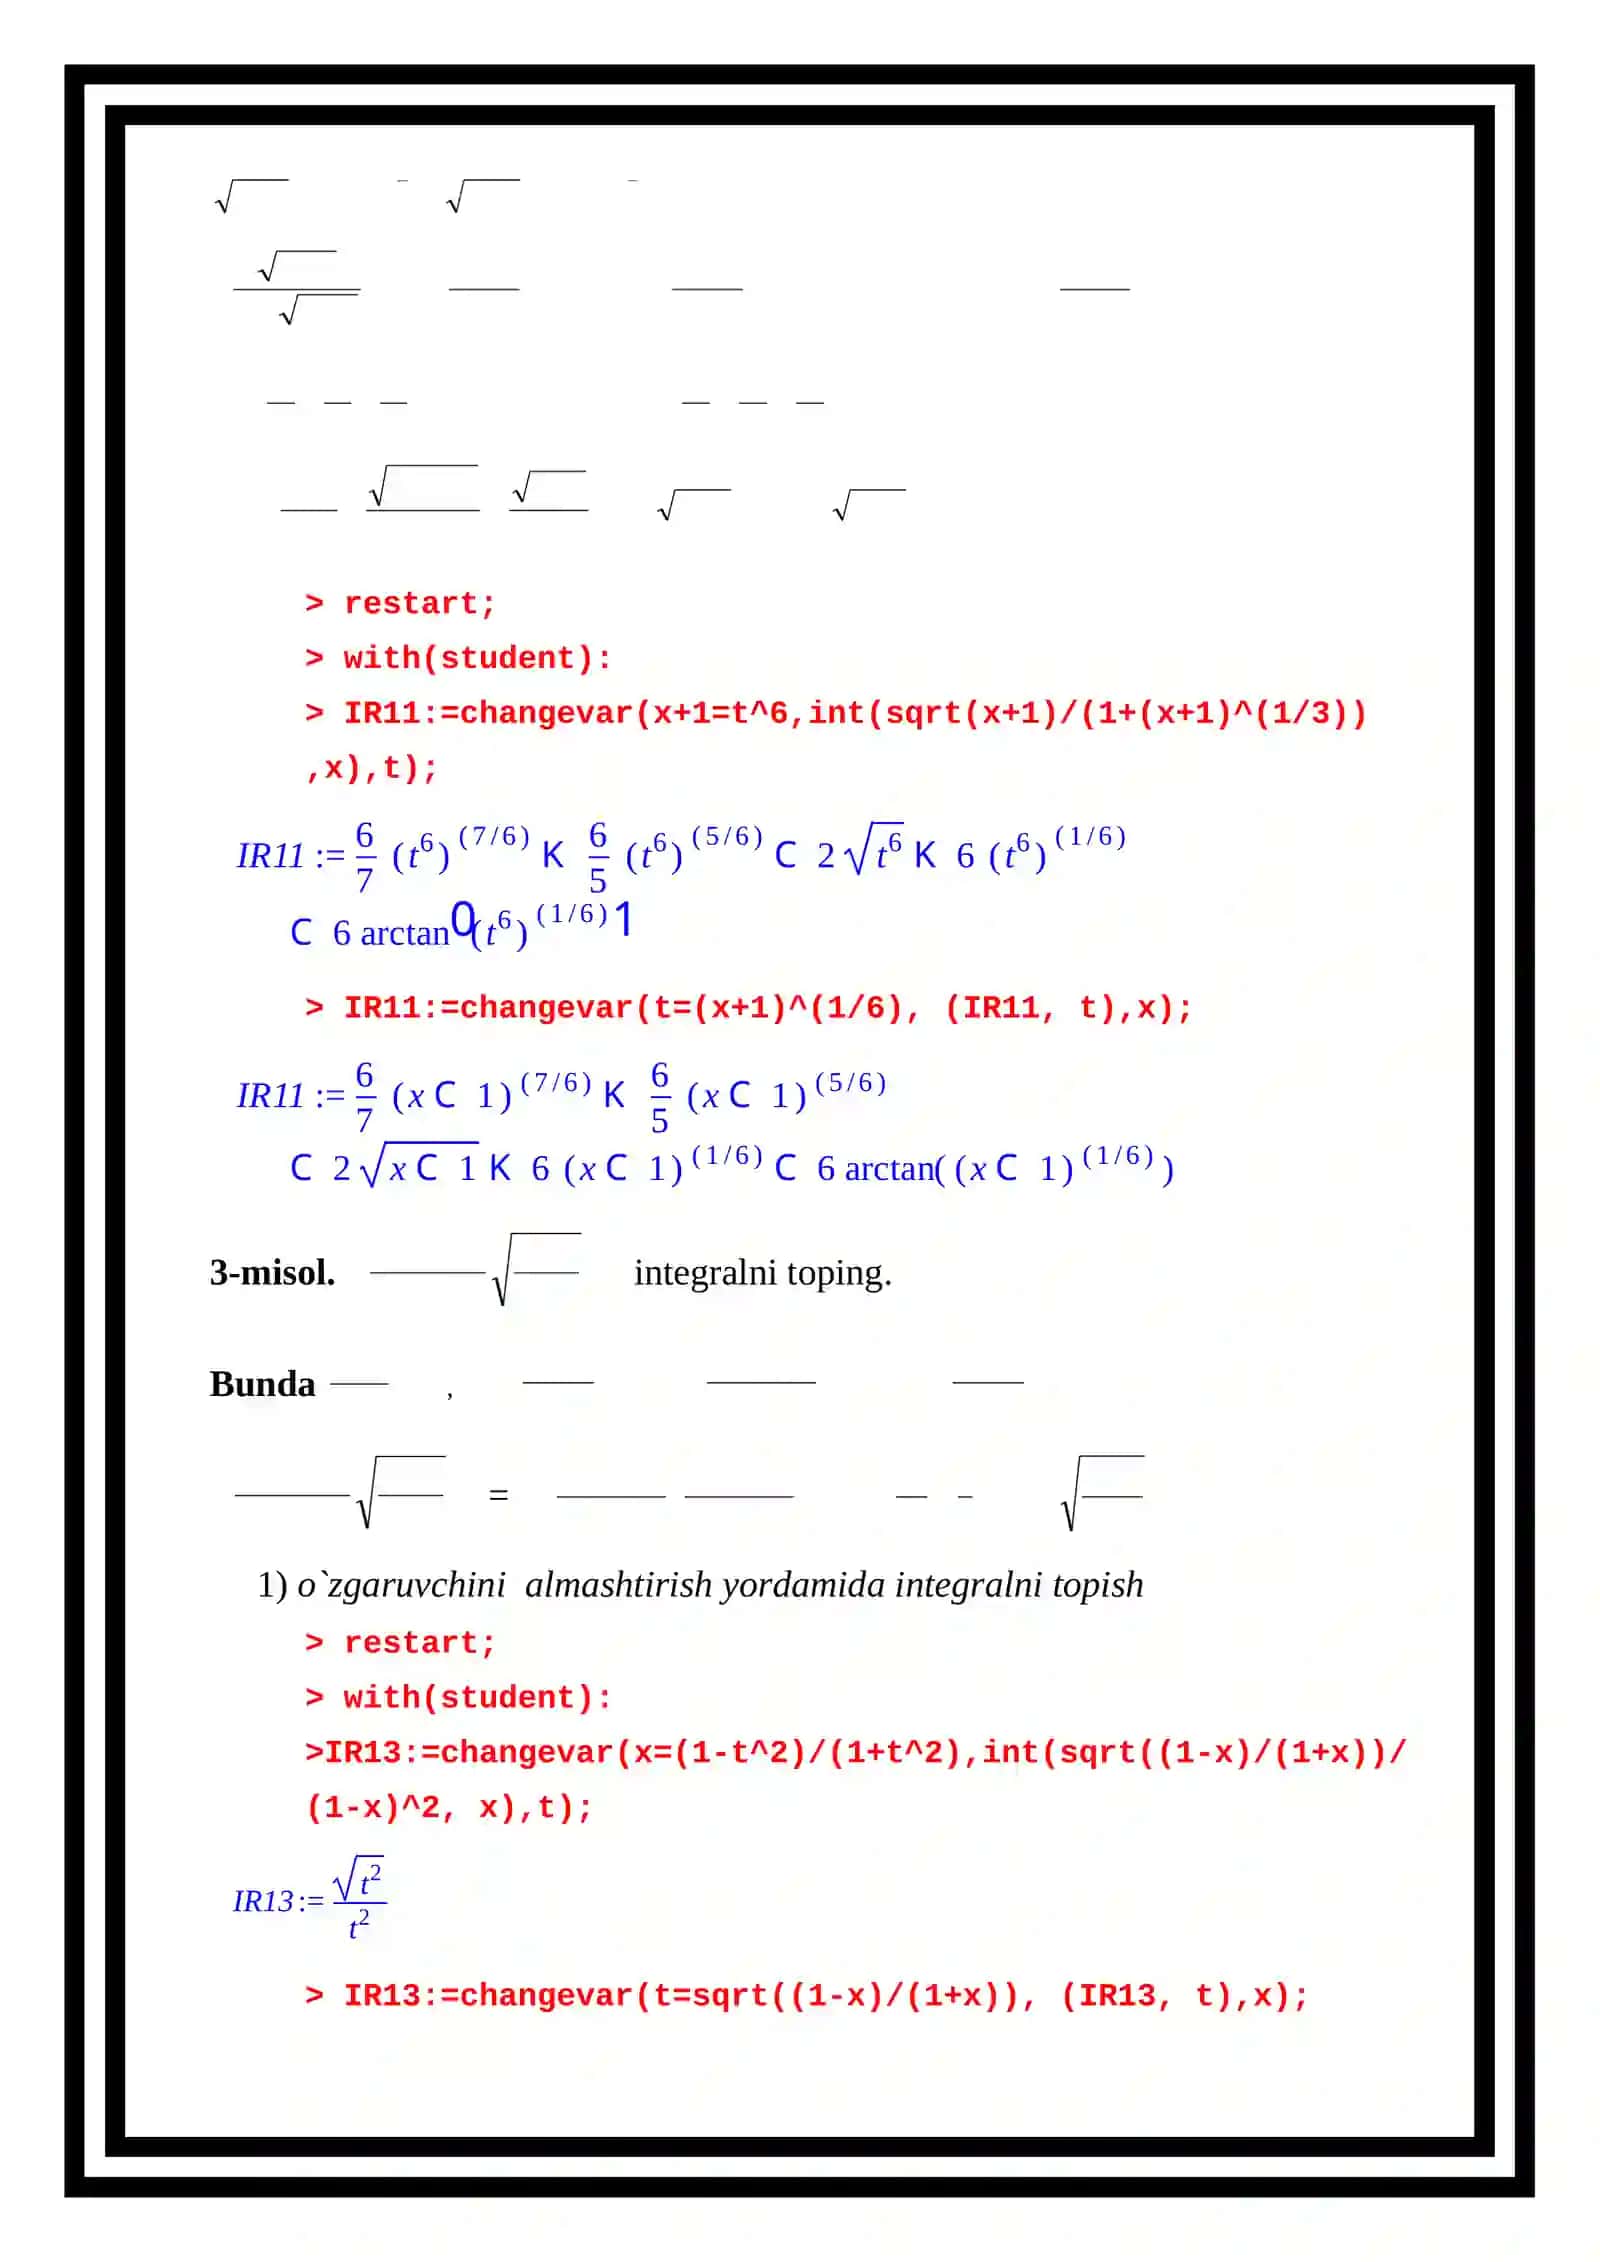 > restart;
> with(student):
> IR11:=changevar(x+1=t^6,int(sqrt(x+1)/(1+(x+1)^(1/3))
,x),t);
IR11 := 6/7 (t^6)^(7/6) K 6/5 (t^6)^(5/6) C 2 √t^6 K 6 (t^6)^(1/6)
C 6 arctan0(t^6)^(1/6)1
> IR11:=changevar(t=(x+1)^(1/6), (IR11, t),x);
IR11 := 6/7 (x C 1)^(7/6) K 6/5 (x C 1)^(5/6)
C 2 √x C 1 K 6 (x C 1)^(1/6) C 6 arctan( (x C 1)^(1/6) )
3-misol. √ integralni toping.
Bunda ,
√ = √
1) o`zgaruvchini almashtirish yordamida integralni topish
> restart;
> with(student):
>IR13:=changevar(x=(1-t^2)/(1+t^2),int(sqrt((1-x)/(1+x))/
(1-x)^2, x),t);
IR13 := √t^2/t^2
> IR13:=changevar(t=sqrt((1-x)/(1+x)), (IR13, t),x);